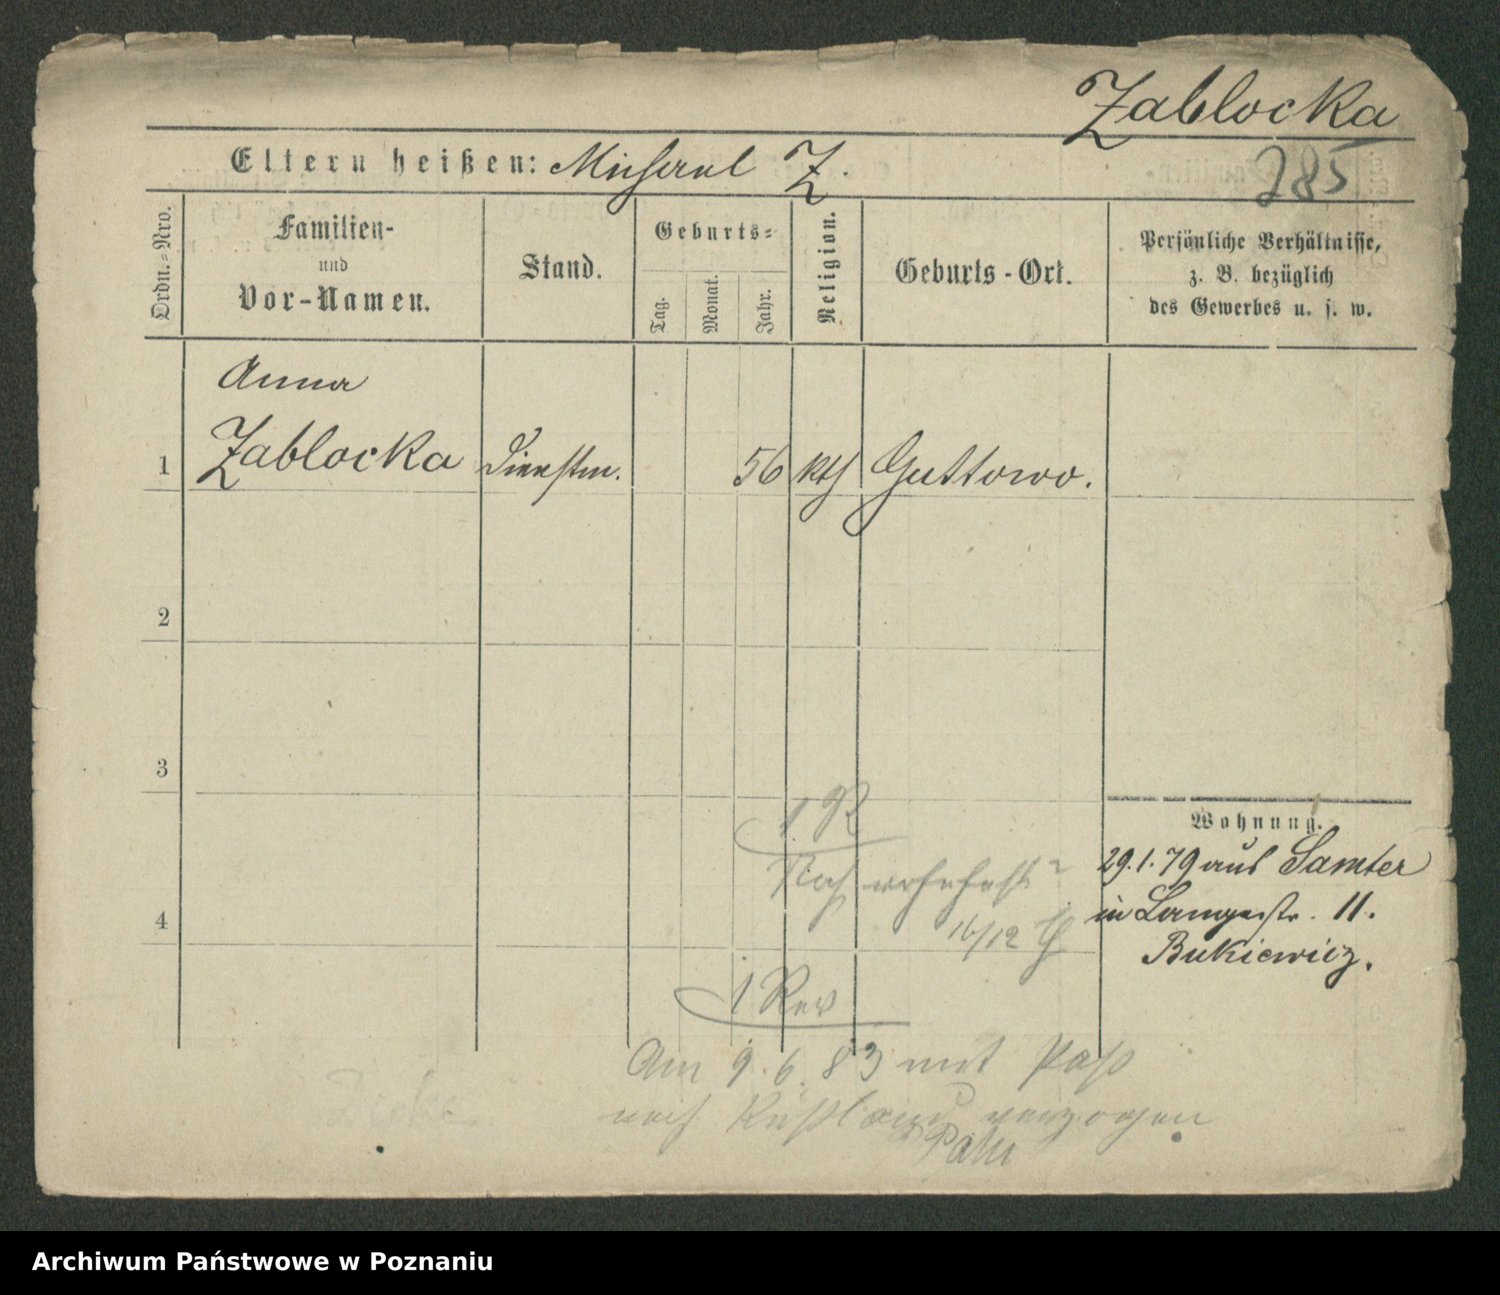 Zablocka
285
Eltern heißen: Michael Z.
Ordn.=Nro.
Familien-
und
Vor-Namen.
Stand.
Geburts=
Tag.
Monat.
Jahr.
Religion.
Geburts-Ort.
Persönliche Verhältnisse,
z. B. bezüglich
des Gewerbes u. s. w.
Anna
1 Zablocka Dienstm. 56 kth Guttowo.
2
3
Wohnung.
29.1.79 aus Samter
in Langestr. 11.
Bukiewicz.
4
Noch wohnhaft?
16/12
1 Rev
Am 9.6.83 mit Paß
nach Rußland verzogen
Archiwum Państwowe w Poznaniu